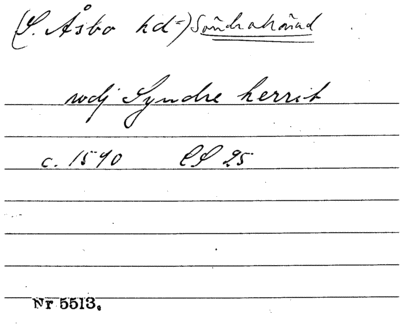 (S. Åsbo hd=) Söndrahärad
udj Syndre herrit
c. 1590 LS 25
Nr 5513.